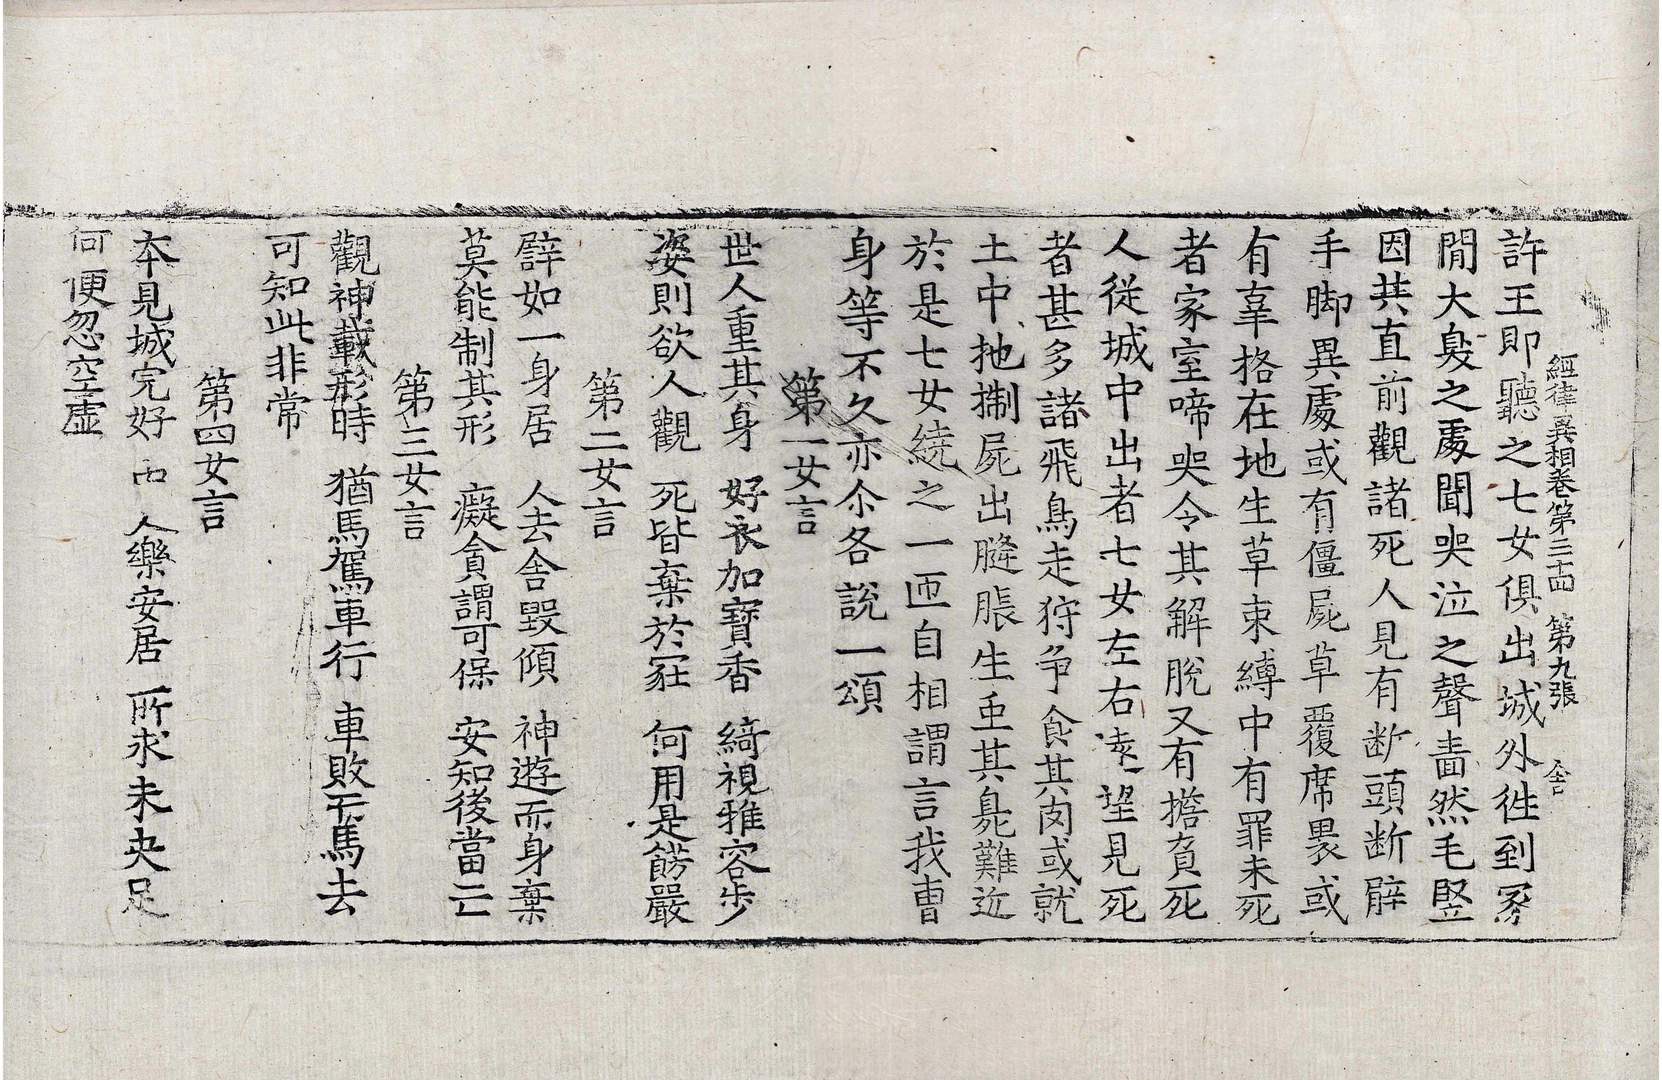 經律異相卷第三十四 第九張 舍
許王即聽之七女俱出城外徃到冢
閒大臭之處聞哭泣之聲啬然毛竪
因共直前觀諸死人見有断頭断臂
手脚異處或有僵屍草覆席褁或
有辜挌在地生草束縛中有罪未死
者家室啼哭令其解脫又有擔負死
人從城中出者七女左右遠望見死
者甚多諸飛鳥走狩爭食其肉或就
土中扡掣屍出膖脹生虫其臰難近
於是七女繞之一匝自相謂言我曹
身等不久亦尒各說一頌
第一女言
世人重其身 好衣加寶香 綺視雅容步
姿則欲人觀 死皆棄於冢 何用是餝嚴
第二女言
譬如一身居 人去舍毀傾 神遊而身棄
莫能制其形 癡貪謂可保 安知後當亡
第三女言
觀神載形時 猶馬駕車行 車敗而馬去
可知此非常
第四女言
本見城完好 中人樂安居 所求未央足
何便忽空虛